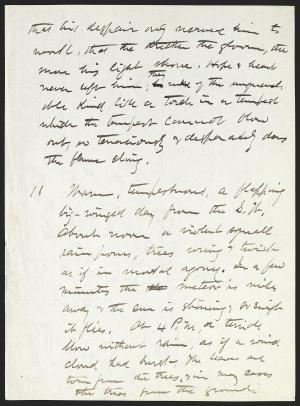 that his despair only nerved him to
work, that the thicker the gloom, the
more his light shone. Hope & heart
never left him; they of the unquench
able kind, like a torch in a tempest
which the tempest cannot blow
out, so tenaciously & desperately does
the flame cling.
11 Warm, tempestuous, a flapping
big-winged day from the S.W.
About noon a violent squall
rain pours, trees wring & twist
as if in mortal agony. In a few
minutes the meteor is miles
away & the sun is shining; as night
it flies. At 4 P.M. a terrible
blow without rain, as if a wind
cloud had burst. The leaves are
torn from the trees, & in many cases
the trees from the ground.